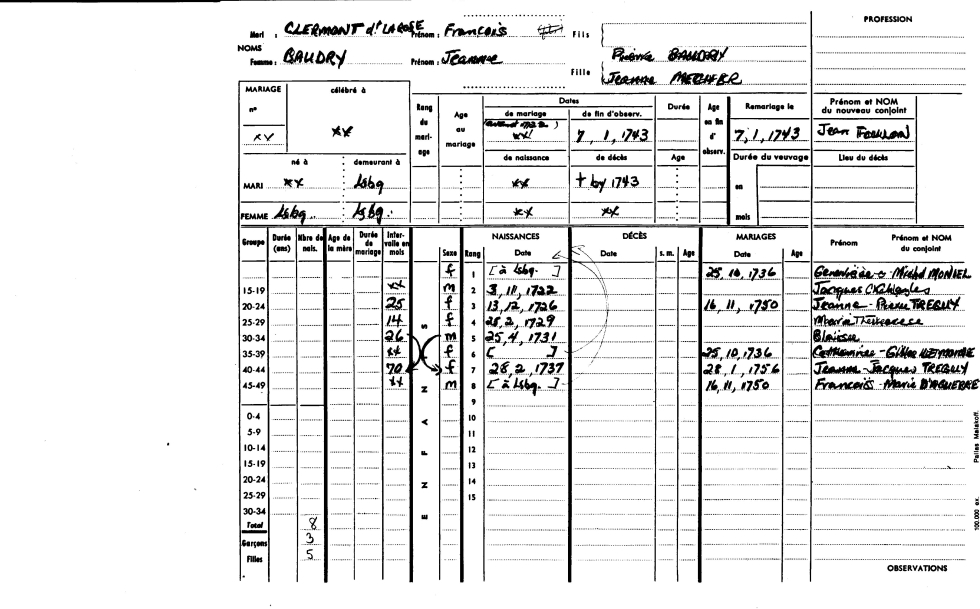 PROFESSION
Mari : CLERMONT dt LAROSE Prénom : François Fils
NOMS
Femme : BAUDRY Prénom : Jeanne Fille Pierre BAUDRY
Jeanne MERCHER
MARIAGE célébré à
n°
xx xx
Rang du mariage
Age au mariage
Dates
de mariage de fin d'observ.
(avant 1722)
xx 7, 1, 1743
Durée
Age en fin d'observ.
Remariage le
7, 1, 1743
Prénom et NOM du nouveau conjoint
Jean
né à demeurant à de naissance de décès Age Durée du veuvage Lieu du décès
MARI xx Lsbg xx † by 1743 en
FEMME Lsbg. Lsbg. xx xx mois
Groupe Durée (ans) Nbre de nais. Age de la mère Durée de mariage Intervalle en mois
ENFANTS
Sexe Rang
NAISSANCES Date
DÉCÈS Date s. m. Age
MARIAGES Date Age
Prénom Prénom et NOM du conjoint
f 1 [à Lsbg. ] 25, 10, 1736 Geneviève - Michel
15-19 xx m 2 3, 11, 1722 Jacques
20-24 25 f 3 13, 12, 1726 16, 11, 1750 Jeanne - Pierre TREGUY
25-29 14 f 4 28, 2, 1729 Marie
30-34 26 m 5 25, 4, 1731 Blaise
35-39 xx f 6 [ ] 25, 10, 1736 Catherine - Gilles LEMOINE
40-44 70 f 7 28, 2, 1737 28, 1, 1756 Jeanne - Jacques TREGUY
45-49 xx m 8 [à Lsbg. ] 16, 11, 1750 François - Marie DAGUERRE
9
0-4 10
5-9 11
10-14 12
15-19 13
20-24 14
25-29 15
30-34
Total 8
Garçons 3
Filles 5
OBSERVATIONS
100.000 ex. Pallas Malakoff.